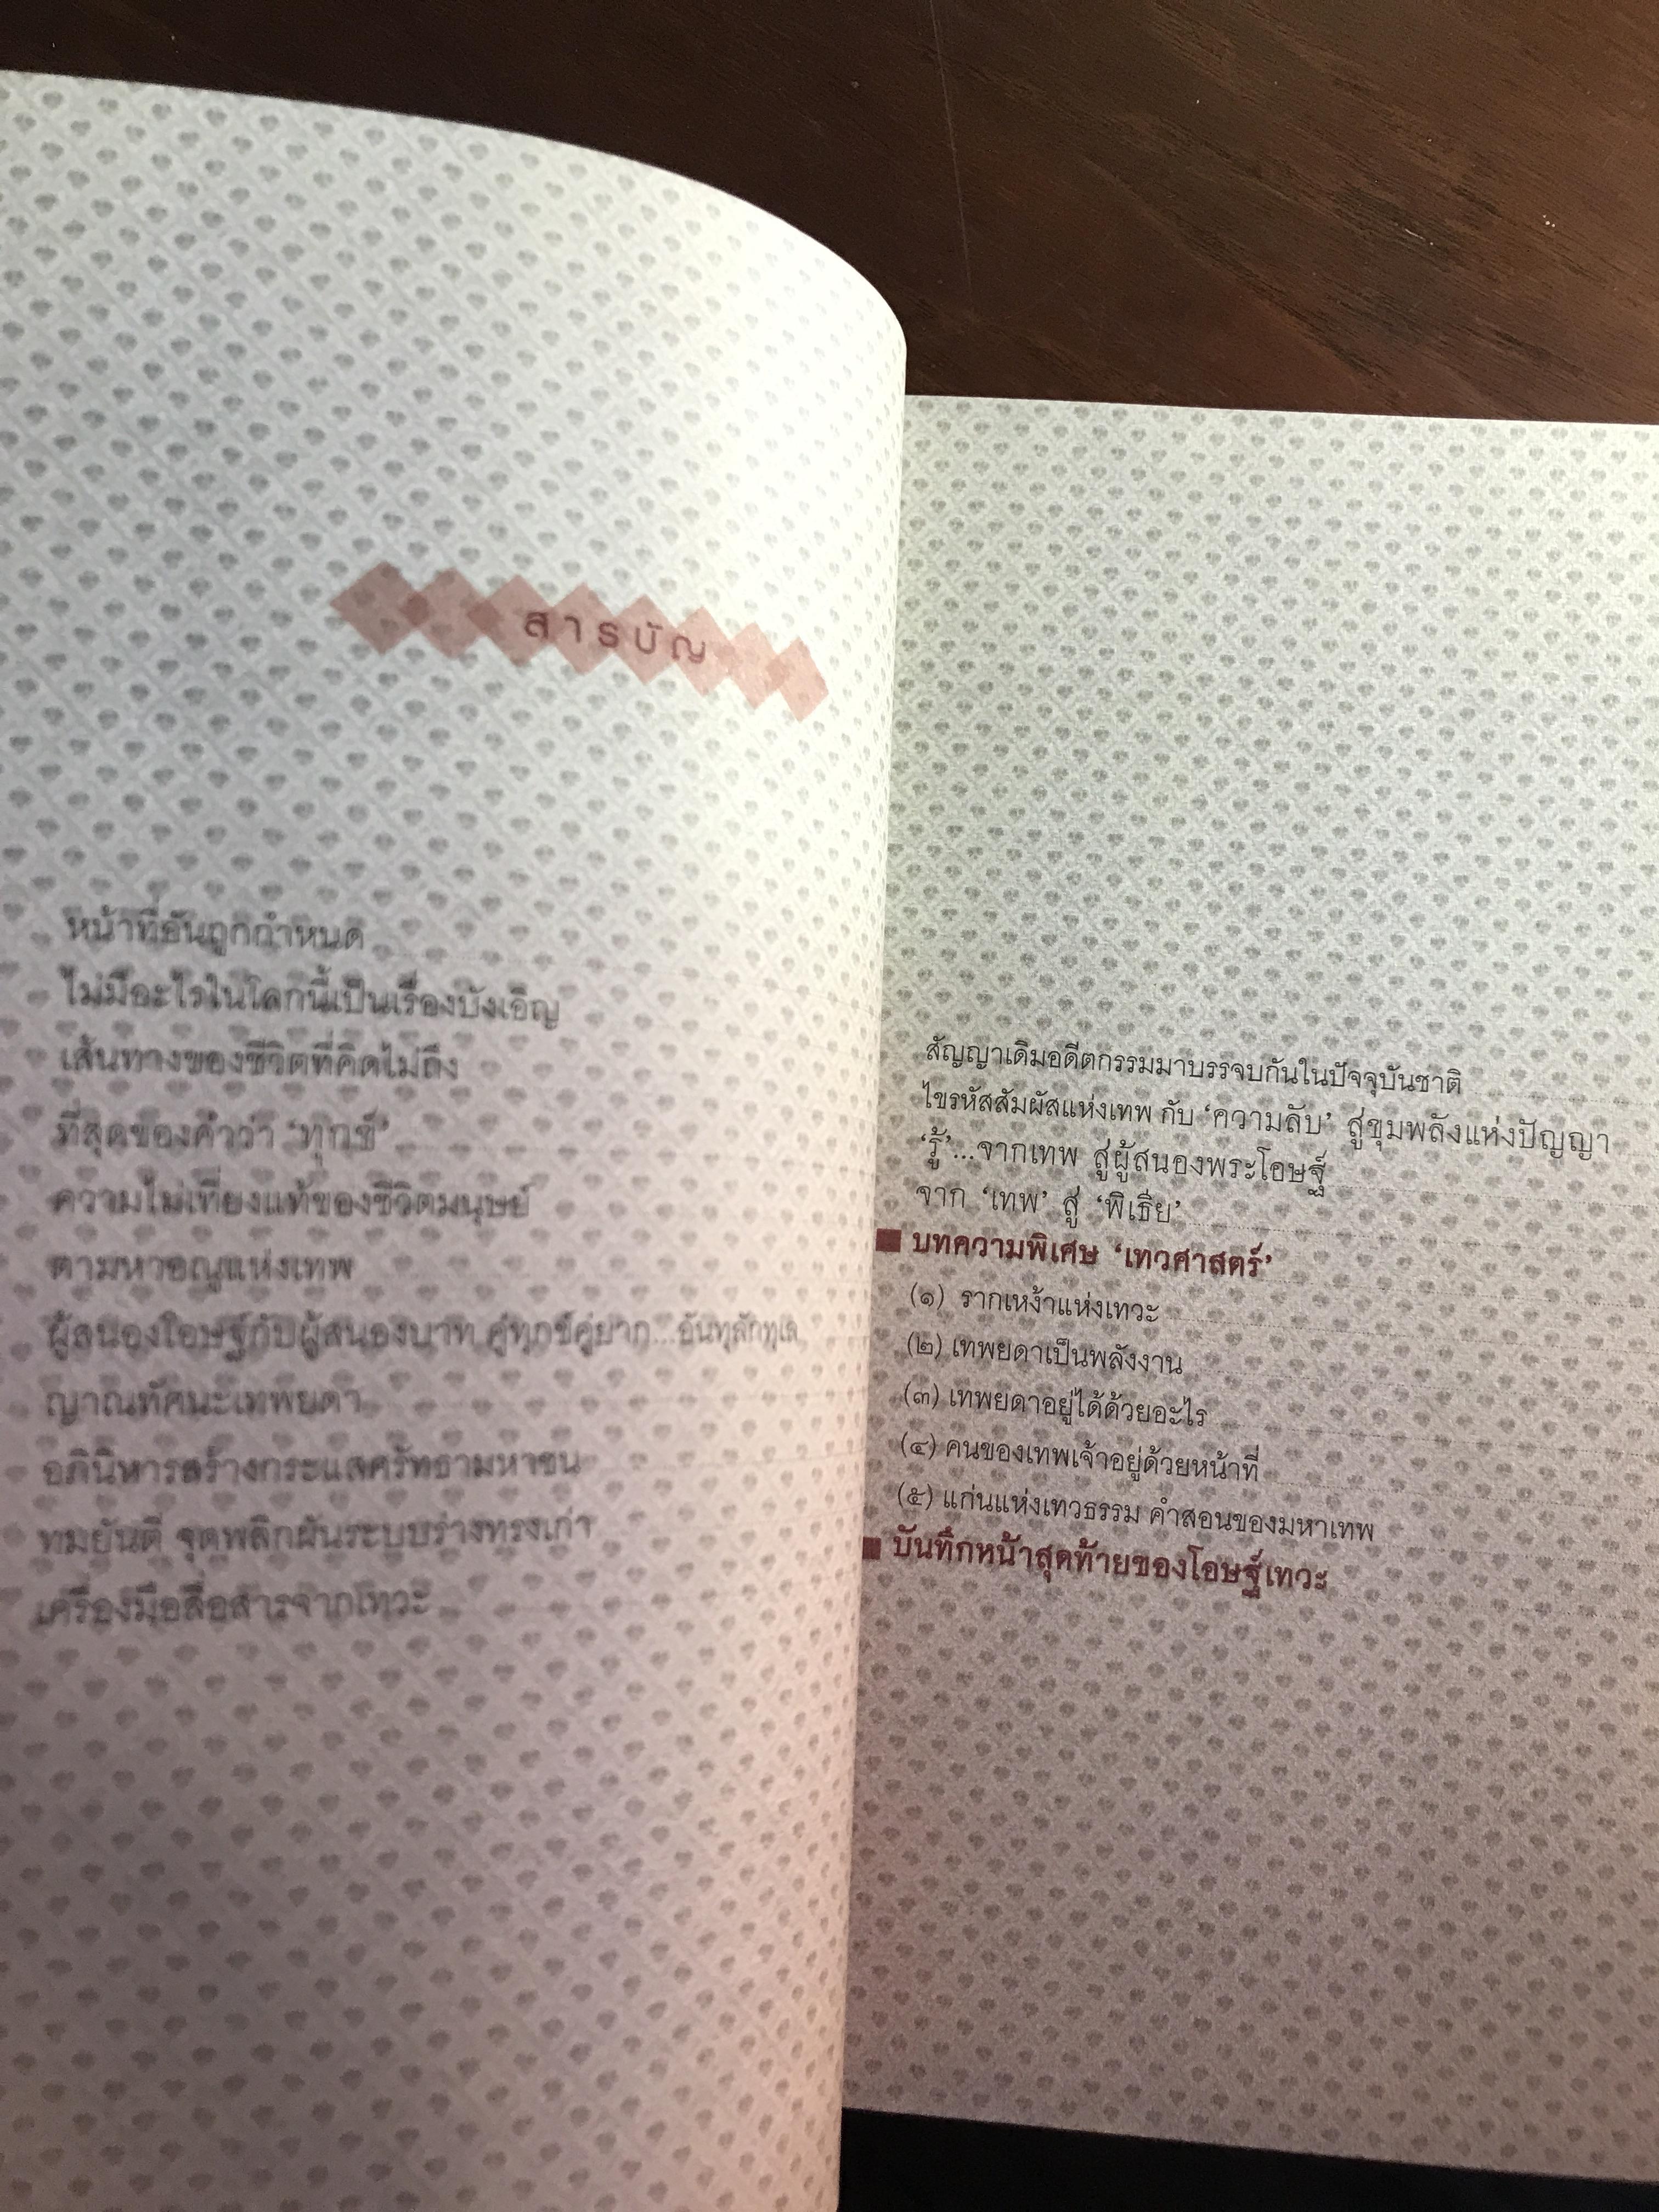 สารบัญ
หน้าที่อันถูกกำหนด
ไม่มีอะไรในโลกนี้เป็นเรื่องบังเอิญ
เส้นทางของชีวิตที่คิดไม่ถึง
ที่สุดของคำว่า ‘ทุกข์’
ความไม่เที่ยงแท้ของชีวิตมนุษย์
ตามหาอณูแห่งเทพ
ผู้สนองโอษฐ์กับผู้สนองบาท คู่ทุกข์คู่ยาก...ขันทุลักทุเล
ญาณทัศนะเทพยดา
อภินิหารสร้างกระแสศรัทธามหาชน
ทมยันตี จุดพลิกผันระบบร่างทรงเก่า
เครื่องมือสื่อสารจากเทวะ
สัญญาเดิมอดีตกรรมมาบรรจบกันในปัจจุบันชาติ
ไขรหัสสัมผัสแห่งเทพ กับ ‘ความลับ’ สู่ขุมพลังแห่งปัญญา
‘รู้’...จากเทพ สู่ผู้สนองพระโอษฐ์
จาก ‘เทพ’ สู่ ‘พิเธีย’
บทความพิเศษ ‘เทวศาสตร์’
(๑) รากเหง้าแห่งเทวะ
(๒) เทพยดาเป็นพลังงาน
(๓) เทพยดาอยู่ได้ด้วยอะไร
(๔) คนของเทพเจ้าอยู่ด้วยหน้าที่
(๕) แก่นแห่งเทวธรรม คำสอนของมหาเทพ
บันทึกหน้าสุดท้ายของโอษฐ์เทวะ